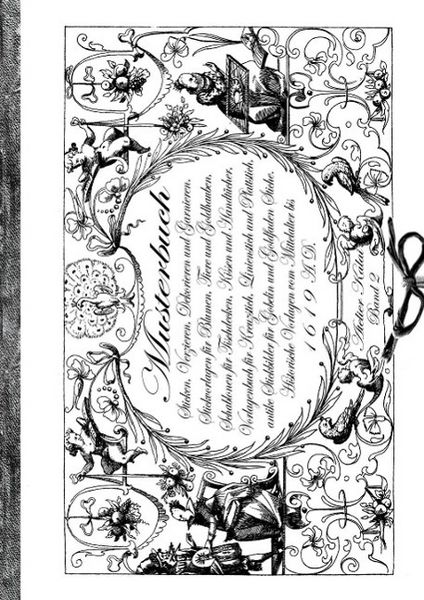 Musterbuch
Sticken, Verzieren, Dekorieren und Garnieren.
Stickvorlagen für Blumen, Tiere und Goldhauben.
Schablonen für Tischdecken, Kissen und Halstücher.
Vorlagenbuch für Kreuzstich, Leinenstich und Plattstich,
antike Stickbilder für Gobelin und Goldfaden Sticke.
Historische Vorlagen vom Mittelalter bis
1619 A.D.
Atelier
Band 2